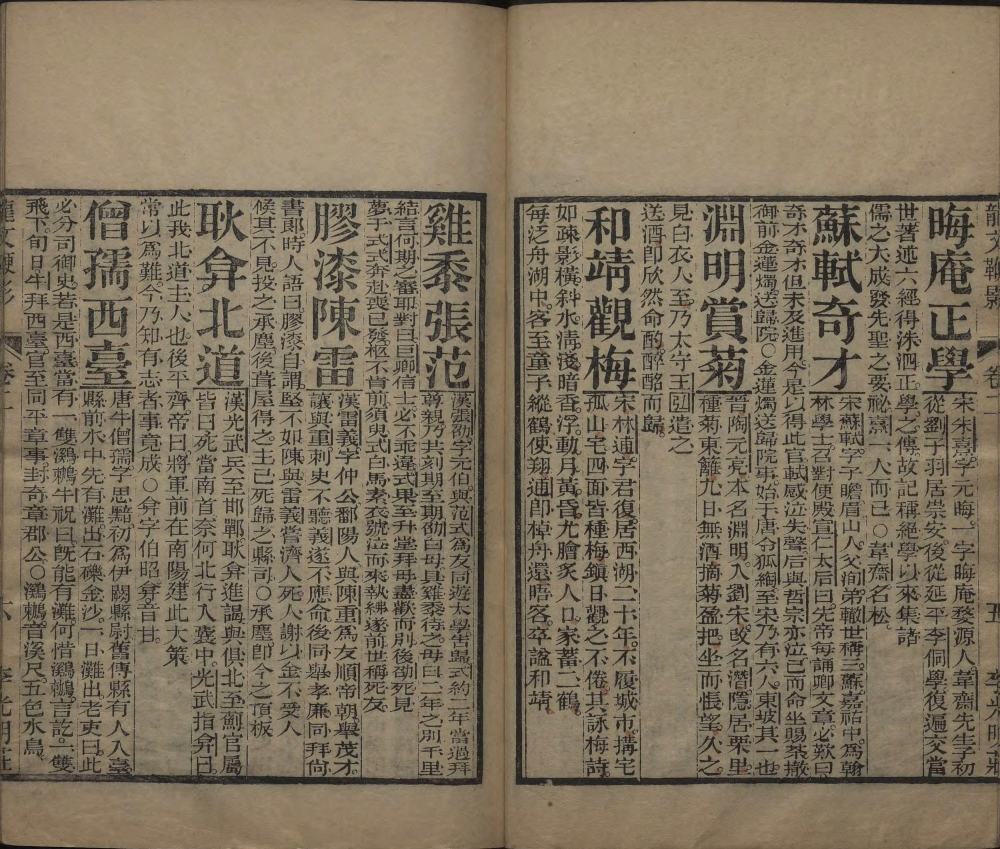 龍文鞭影 卷二 五 李光明莊
晦庵正學
宋朱熹字元晦一字晦庵婺源人韋齋先生子初
從劉子羽居崇安後從延平李侗學復遍交當
世著述六經得洙泗正學之傳故記稱絕學以來集諸
儒之大成發先聖之要祕熹一人而已〇韋齋名松
蘇軾奇才
宋蘇軾字子瞻眉山人父洵弟轍世稱三蘇嘉祐中為翰
林學士召對便殿宣仁太后曰先帝每誦卿文章必歎曰
奇才奇才但未及進用今是以得此官軾感泣失聲后與哲宗亦泣已而命坐賜茶撤
御前金蓮燭送歸院〇金蓮燭送歸院事始于唐令狐綯至宋乃有六人東坡其一也
淵明賞菊
晉陶元亮本名淵明入劉宋改名潛隱居栗里
種菊東籬九日無酒摘菊盈把坐而悵望久之
見白衣人至乃太守王弘遣之
送酒卽欣然命酌酣酩而歸
和靖觀梅
宋林逋字君復居西湖二十年不履城市搆宅
孤山宅四面皆種梅鎮日觀之不倦其詠梅詩
如疎影橫斜水清淺暗香浮動月黃昏尤膾炙人口家蓄二鶴
每泛舟湖中客至童子縱鶴便翔逋卽棹舟還晤客卒諡和靖
雞黍張范
漢張劭字元伯與范式為友同遊太學告歸式約二年當過拜
尊親乃共刻期至期劭白母具雞黍待之母曰二年之別千里
結言何期之審耶對曰巨卿信士必不乖違式果至升堂拜母盡歡而別後劭死見
夢于式式奔赴喪已發柩不肯前須臾式白馬素衣號泣而來執紼遂前世稱死友
膠漆陳雷
漢雷義字仲公鄱陽人與陳重為友順帝朝舉茂才
讓與重刺史不聽義遂不應命後同舉孝廉同拜尚
書郞時人語曰膠漆自謂堅不如陳與雷義嘗濟人死人謝以金不受人
候其不見投之承塵後葺屋得之主已死歸之縣司〇承塵卽今之頂板
耿弇北道
漢光武兵至邯鄲耿弇進謁與俱北至薊官屬
皆曰死當南首奈何北行入囊中光武指弇曰
此我北道主人也後平齊帝曰將軍前在南陽建此大策
常以為難今乃知有志者事竟成〇弇字伯昭弇音甘
僧孺西臺
唐牛僧孺字思黯初為伊闕縣尉舊傳縣有人入臺
縣前水中先有灘出石礫金沙一日灘出老吏曰此
必分司御史若是西臺當有一雙鸂鶒牛祝曰旣能有灘何惜鸂鶒言訖一雙
飛下旬日牛拜西臺官至同平章事封奇章郡公〇鸂鶒音溪尺五色水鳥
龍文鞭影 卷二 六 李光明莊